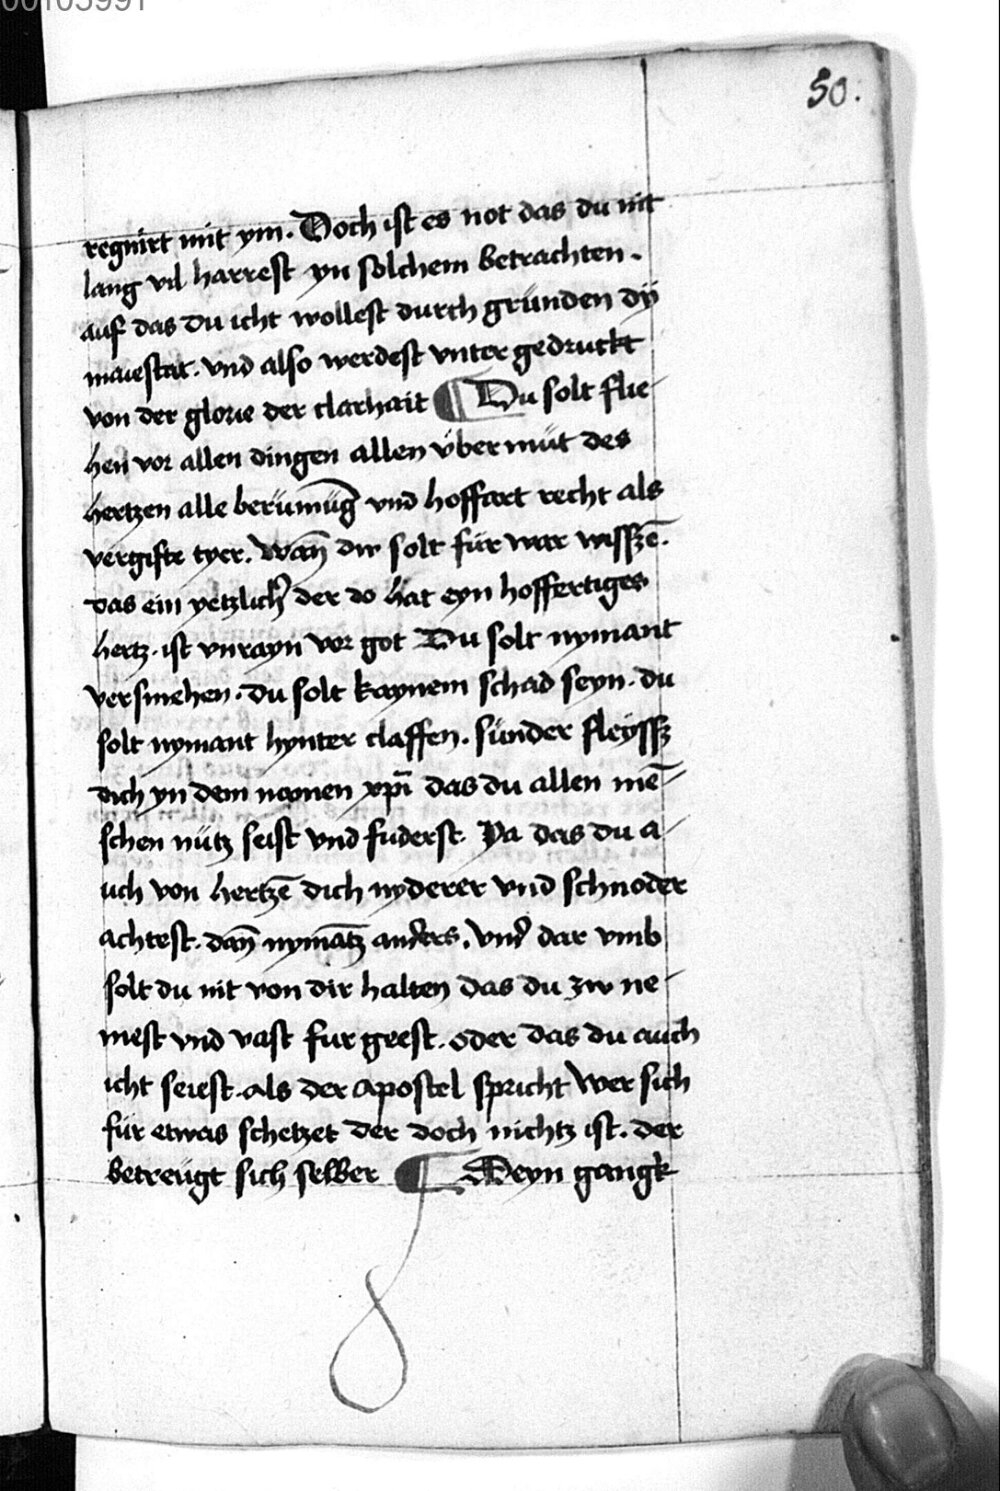 00105991
50.
regnirt mit ym. Doch ist es not das du nit
lang vil harrest yn solchem betrachten.
auf das du icht wollest durch gründen dÿ
maiestat. vnd also werdest vnter gedruckt
von der glorie der clarhait ¶ Du solt flie
hen vor allen dingen allen übermüt des
hertzen alle berümüg̅ vnd hoffart recht als
vergifte tyer. Wan̅ dw solt für war wissze̅.
das ein yetzlich̕ der do hat eyn hoffertiges
hertz. ist vnrayn vor got Du solt nymant
versmehen. du solt kaynem schad seyn. du
solt nymant hynter claffen. sünder fleyssz
dich yn dem namen xpi̅ das du allen me̅
schen nütz seist vnd fuderst. Ya das du a
uch von hertze̅ dich nyderer vnd schnoder
achtest. dan̅ nyma̅tz anders. Vnd dar vmb
solt du nit von dir halten das du zw ne
mest vnd vast fur geest. oder das du auch
icht seiest. als der apostel spricht Wer sich
für etwas schetzet der doch nichtz ist. der
betreügt sich selber ¶ Deyn gangk